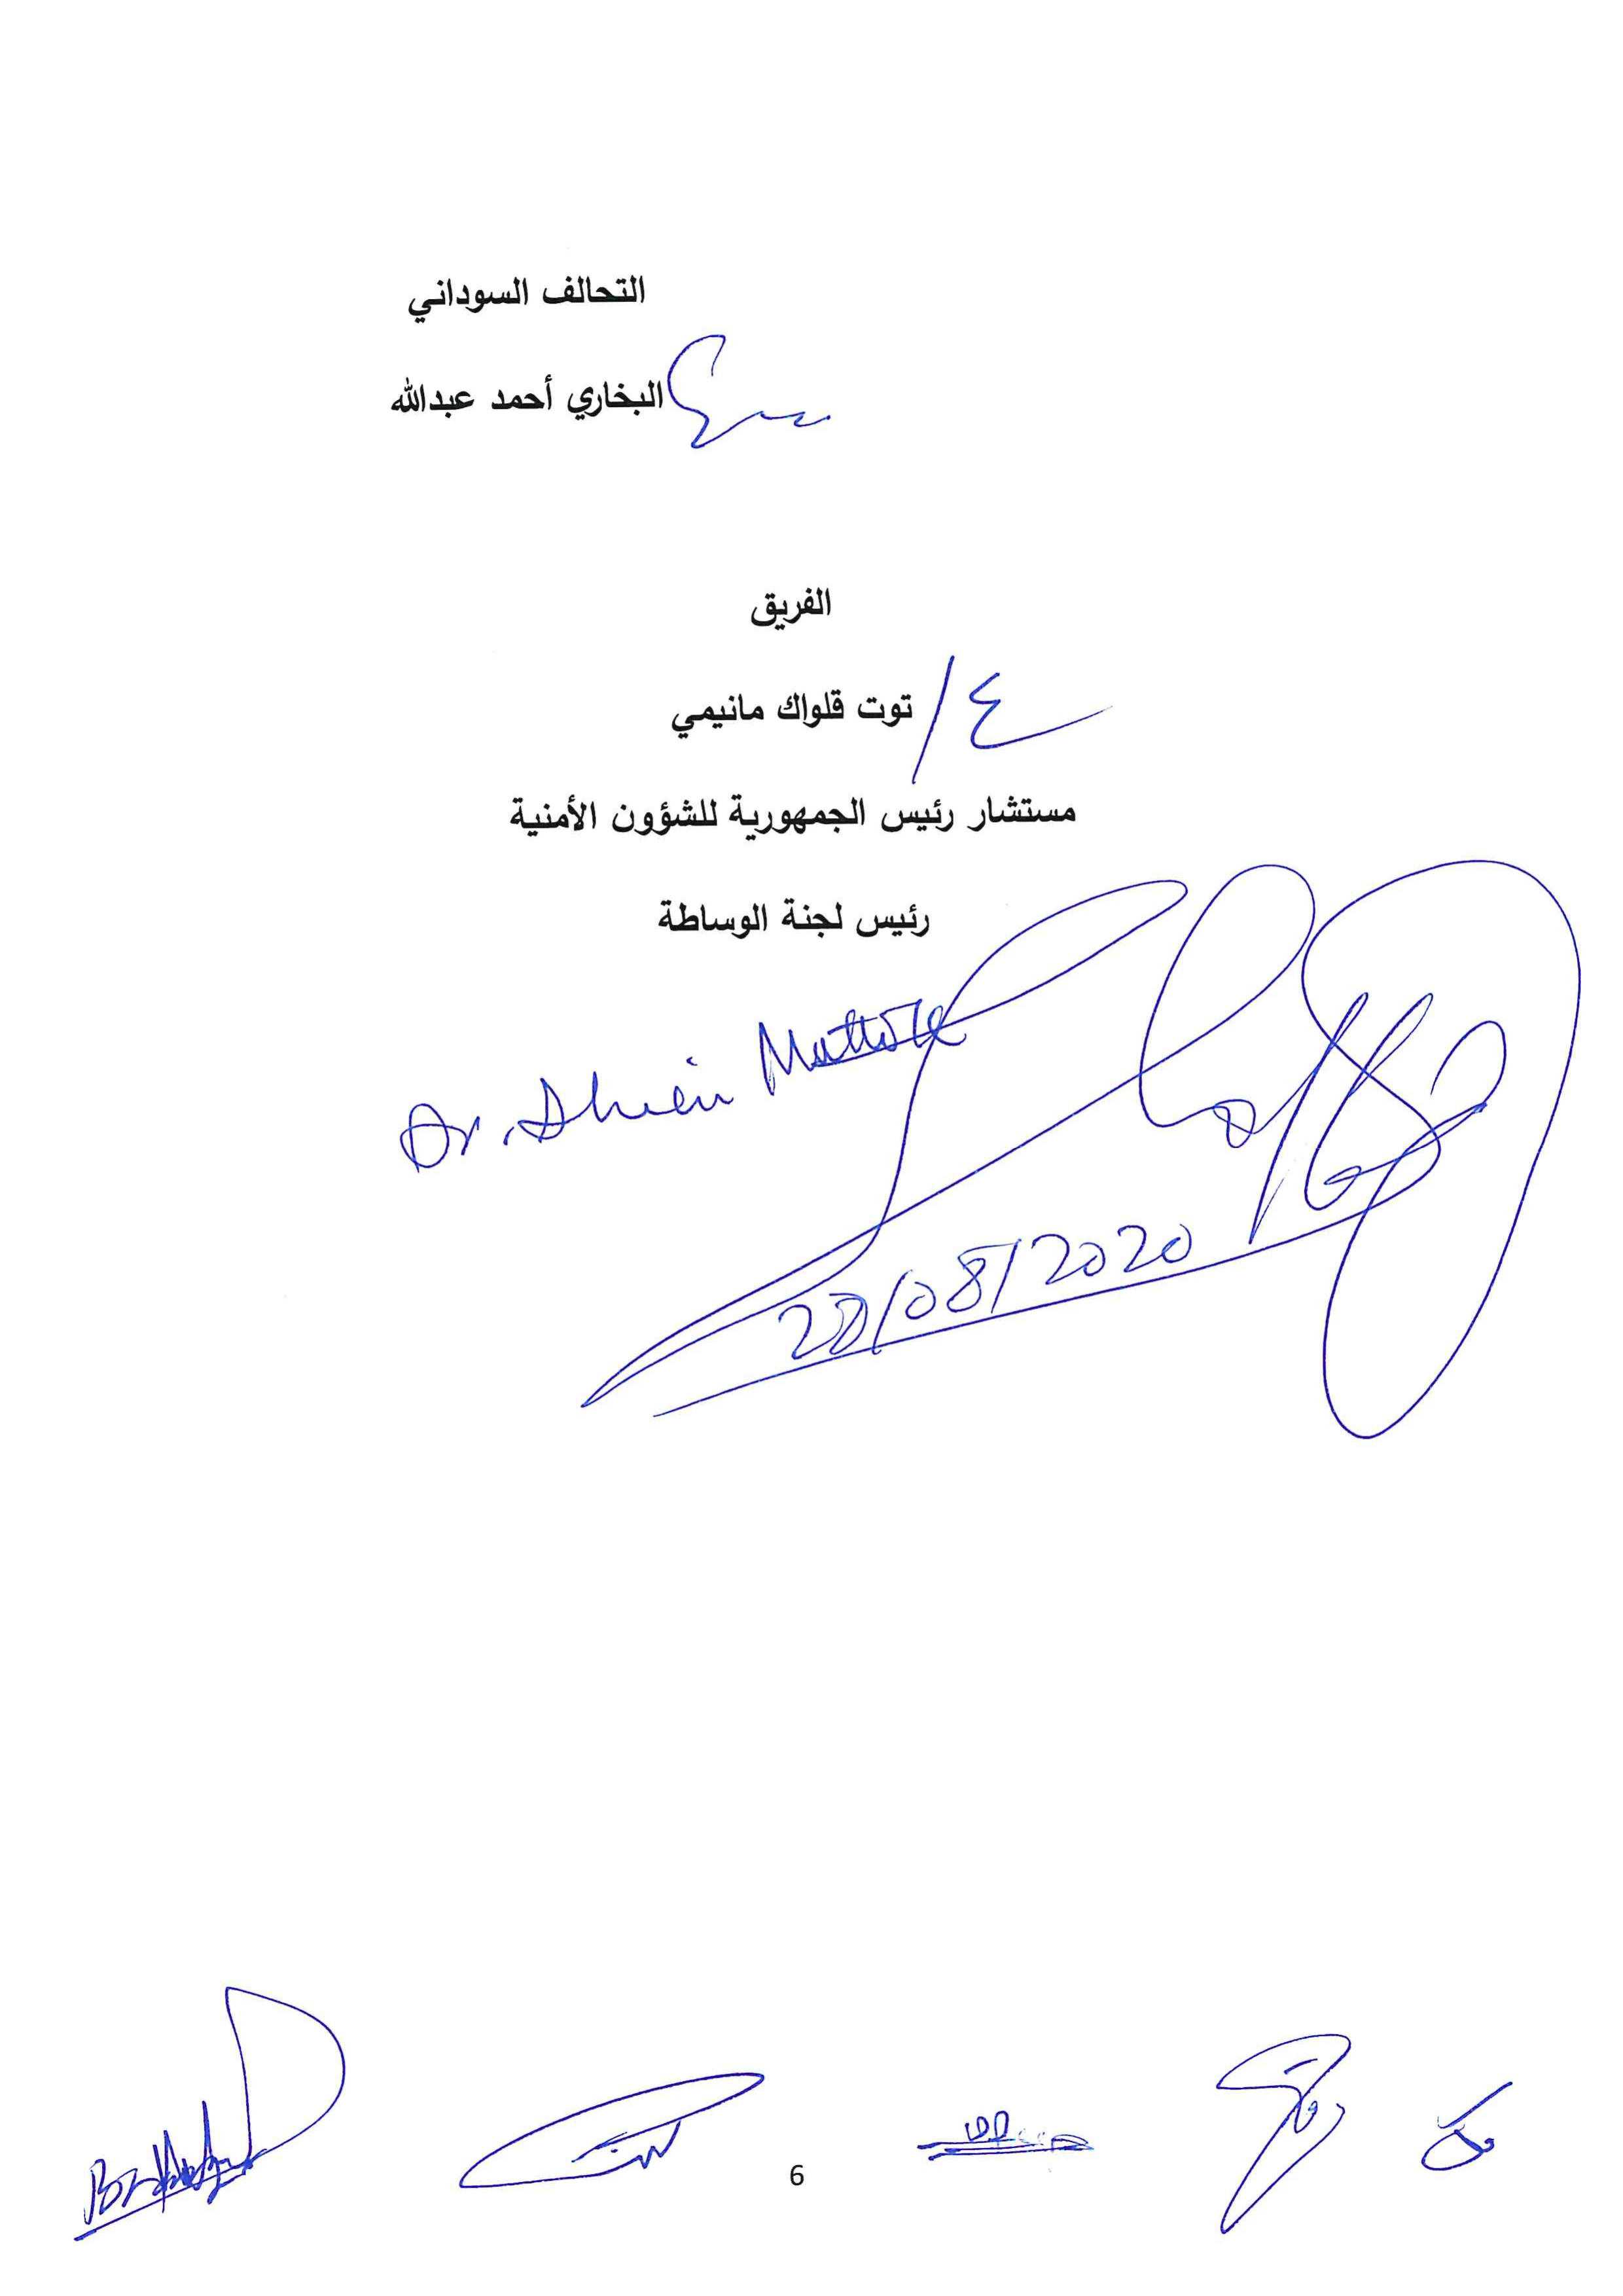 التحالف السوداني
البخاري أحمد عبدالله
الفريق
ع/ توت قلواك مانيمي
مستشار رئيس الجمهورية للشؤون الأمنية
رئيس لجنة الوساطة
Dr. Dhieu Mathok
/08/2020
6